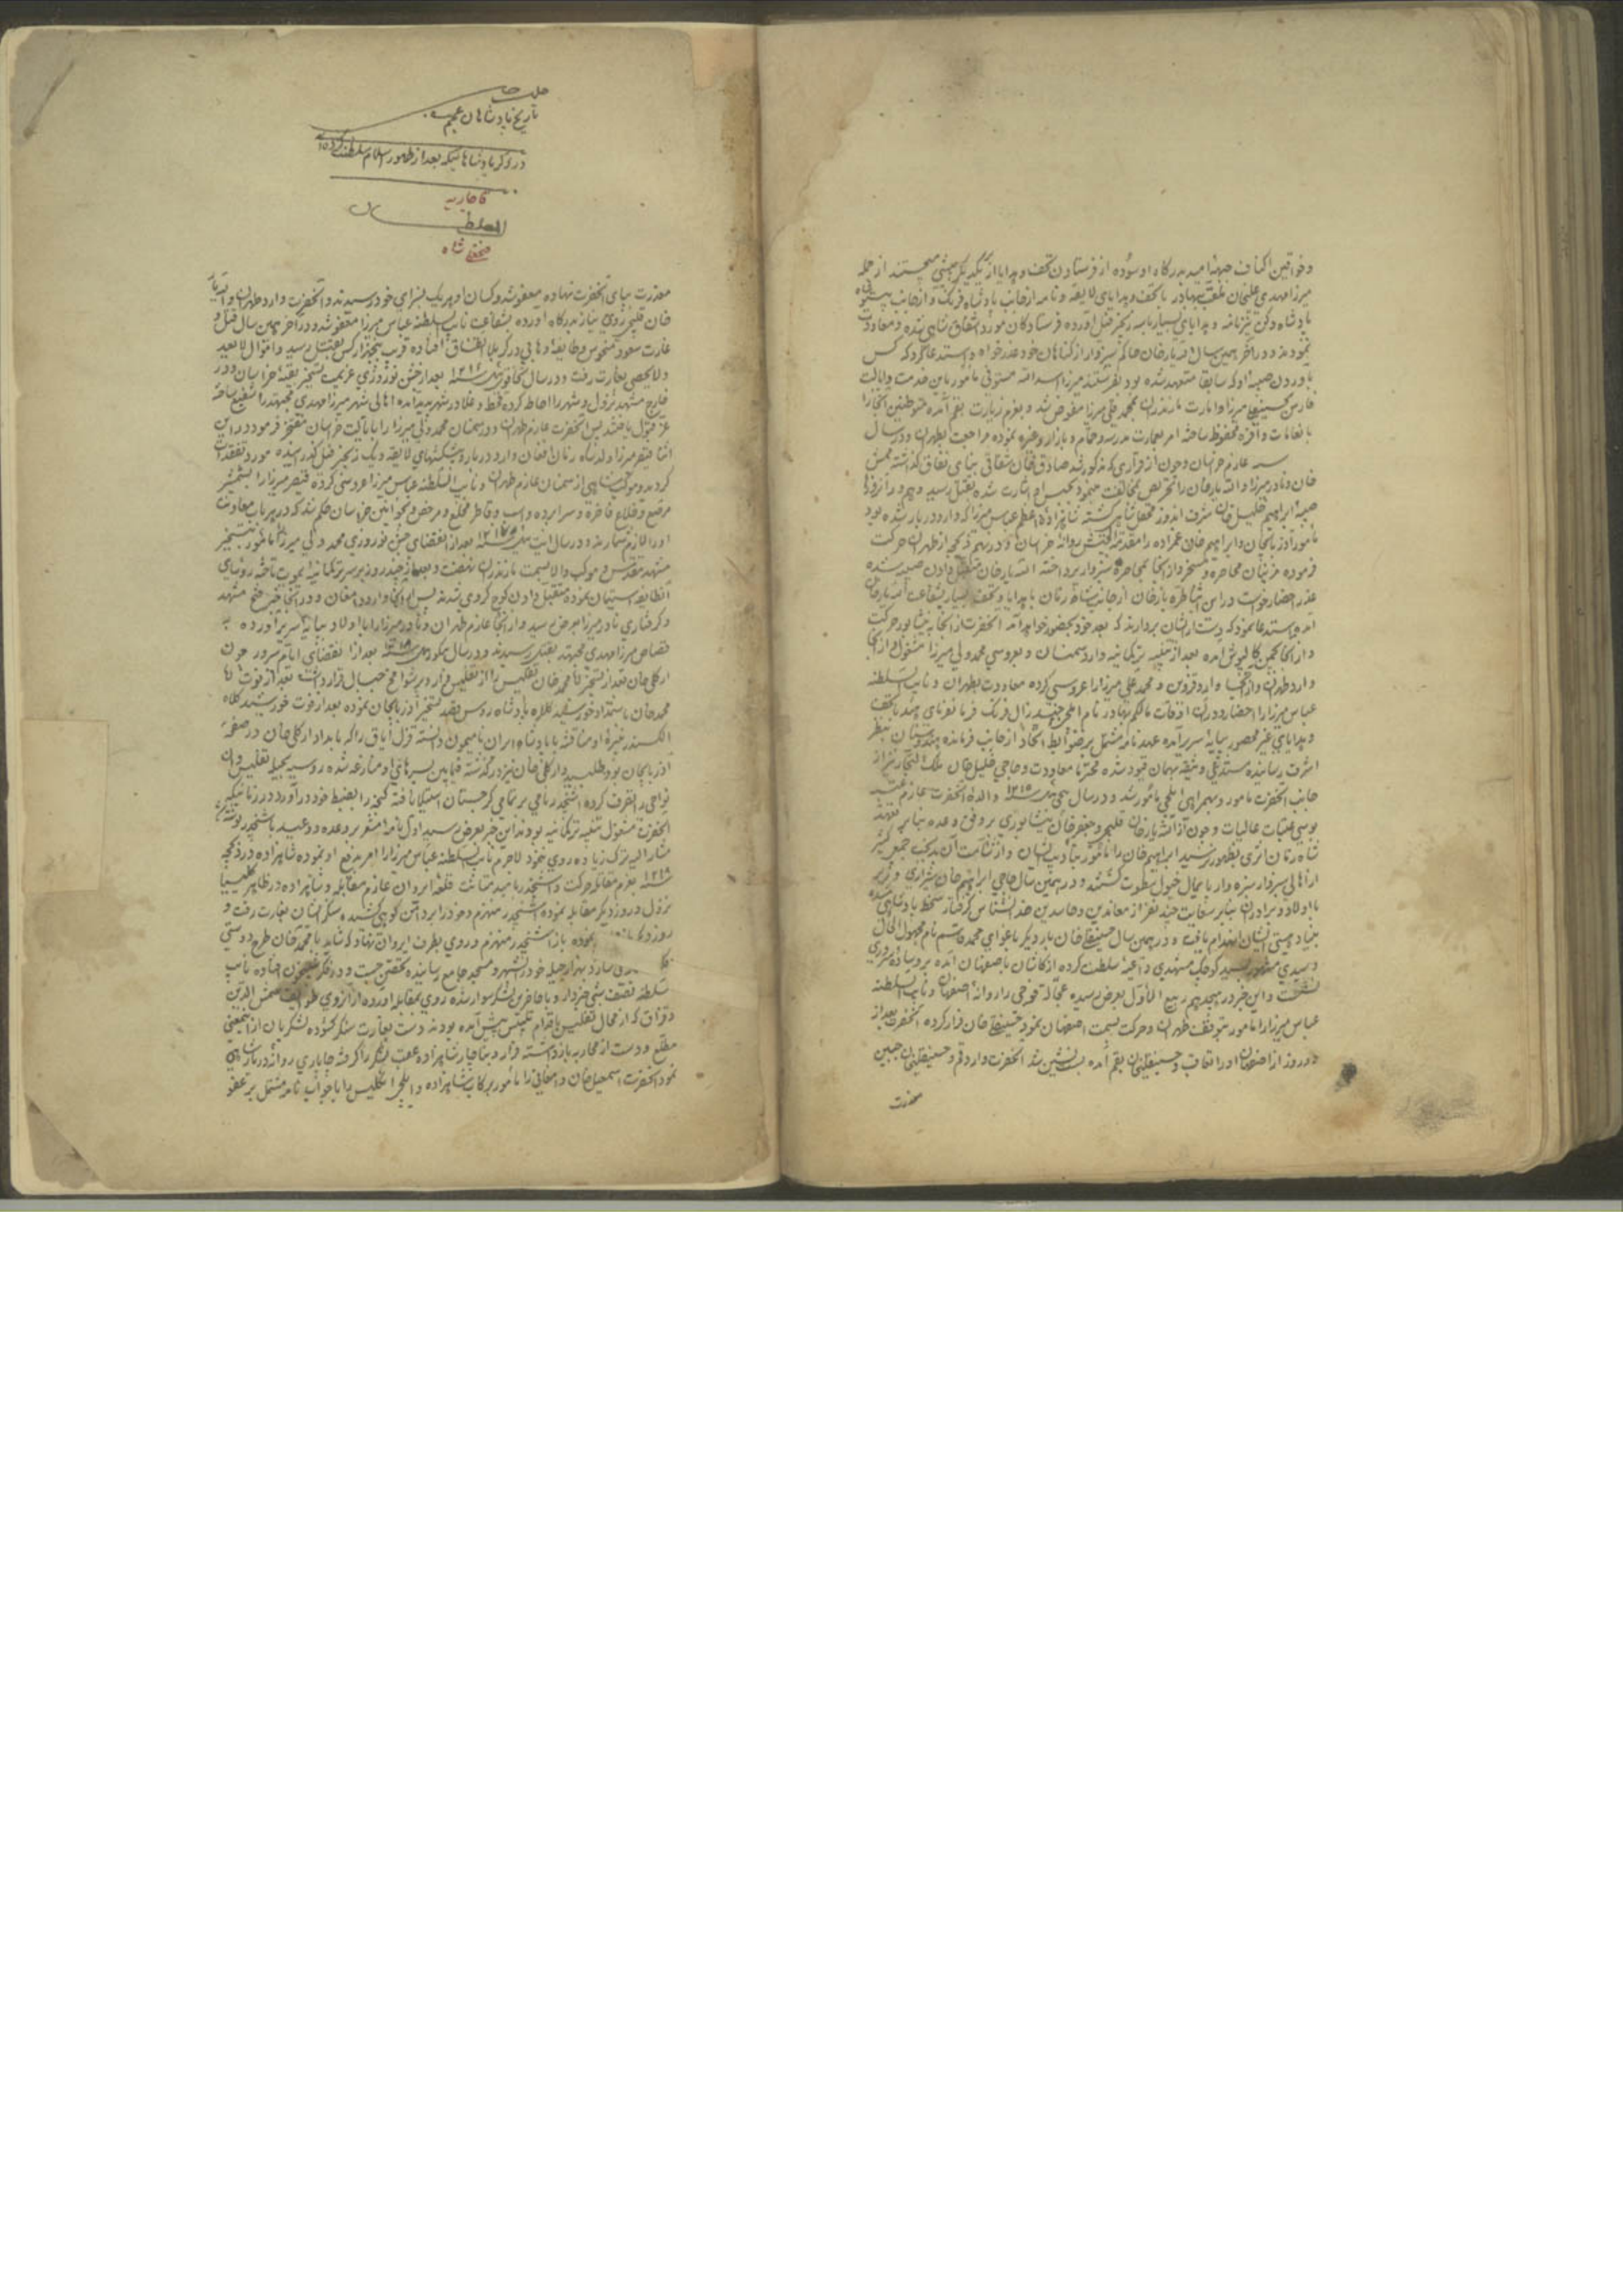 و خواقین اکناف جبهه امید بدرگاه او سوده از فرستادن تحف و هدایا از یکدیگر پیشی میجستند از جمله
میرزا مهدی علیخان بهادر با تحف و هدایای لایقه و نامه از جانب پادشاه فرنک و از جانب
پادشاه دکن نیز نامه و هدایای بسیار با سه زنجیر فیل آورده فرستادگان مورد اشفاق شاهی شده و معاودت
نمودند و در آخر همین سال الله یارخان حاکم سبزوار از گناهان خود عذرخواه و استدعا کرد که کس
باوردن صبیه او که سابقا متعهد شده بود بفرستند میرزا اسدالله مستوفی مأمور باین خدمت و ایالت
فارس بحسینعلی میرزا و امارت مازندران بمحمد قلی میرزا مفوض شد و بعزم زیارت بقم آمده متوطنین آنجا را
بانعامات وافره محفوظ ساخته امر بعمارت مدرسه و حمام و بازار و غیره نموده مراجعت بطهران و در سال
عازم خراسان و چون از قراری که مذکور شد صادق خان شقاقی بنای نفاق گذاشته
خان و نادر میرزا و الله یارخان را تحریص بمخالفت مینمود بقتل رسید و هم در آنروز
صبیه ابراهیم خلیل خان شرف اندوز محفل شاهی گشته شاهزاده اعظم عباس میرزا که وارد دربار شده بود
مأمور آذربایجان و ابراهیم خان عمزاده را مقدمة الجیش روانه خراسان و در نهم ذیحجه از طهران حرکت
فرموده مزینان محاصره و مسخر و از آنجا بمحاصره سبزوار پرداخته الله یارخان دادن صبیه شده
عذر احضار خواست در این اثنا طره بازخان از جانب شاه زمان با هدایا و تحف بسیار بشفاعت الله یارخان
آمده استدعا نمود که دست از ایشان بردارند که بعد خود بحضور خواهد آمد آنحضرت از آنجا به نیشابور حرکت
و از آنجا بچمن کالپوش آمده بعد از تنبیه ترکمانیه وارد سمنان و بعروسی محمد ولی میرزا مشغول و از آنجا
وارد طهران و از آنجا وارد قزوین و محمد علی میرزا را عروسی کرده معاودت بطهران و نایب السلطنه
عباس میرزا را احضار و در آن اوقات مالکم بهادر نام ایلچی جنرال فرنک فرمانفرمای هند با تحف
و هدایای غیر محصور بپایه سریر آمده عهد نامه مشتمل بر ضوابط اتحاد از جانب فرمانده هندوستان بنظر
اشرف رسانیده مستدعی وثیقه بهمان قیود شده محترما معاودت و حاجی خلیل خان ملک التجار نیز از
جانب آنحضرت مامور و بهمراهی ایلچی مأمور شد و در سال ۱۲۱۵ والده آنحضرت عازم
بوسی عتبات عالیات و چون از الله یارخان قلیچی و جعفرخان نیشابوری بر وفق وعده بنابر تعهد
شاه زمان اثری بظهور نرسید ابراهیم خان را مأمور بتأدیب ایشان و از شآمت آن جمعی کثیر
از اهالی سبزوار سبزه وار پایمال خیول سطوت گشتند و در همین سال حاجی ابراهیم خان شیرازی وزیر
با اولاد و برادران بنابر سعایت چند نفر از معاندین و حاسدین خدانشناس گرفتار سخط پادشاهی شده
بنیاد هستی ایشان انهدام یافت و در همین سال حسینقلی خان بار دیگر باغوای محمد قاسم نام مجهول الحال
و سیدی مشهور بسید کوچک مشهدی داعیه سلطنت کرده از کاشان باصفهان آمده بر وساده سروری
نشست و این خبر در هیجدهم ربیع الاول بعرض رسیده عجالة فوجی را روانه اصفهان و نایب السلطنه
عباس میرزا را مامور بتوقف طهران و حرکت بسمت اصفهان نمود حسینقلی خان فرار کرده آنحضرت بعد از
دو روز از اصفهان او را تعاقب و حسینقلیخان بقم آمده بست نشین شد آنحضرت وارد قم و حسینقلیخان جبین
معذرت
جلد
تاریخ پادشاهان عجم
در ذکر پادشاهانیکه بعد از ظهور اسلام سلطنت کرده اند
قاجاریه
السلطان
فتحعلی شاه
معذرت بپای آنحضرت نهاده معفو شد و کسان او هر یک بسزای خود رسیدند و آنحضرت وارد طهران و الله یار
خان قلیچی روی نیاز بدرگاه آورده بشفاعت نایب السلطنه عباس میرزا معفو شد و در آخر همین سال قتل و
غارت سعود منحوس و طایفه وهابی در کربلا اتفاق افتاده قریب پنجهزار کس بقتل رسید و اموال لا یعد
و لا یحصی بغارت رفت و در سال ۱۲۱۶ بعد از جشن نوروزی عزیمت تسخیر بقیه خراسان و در
خارج مشهد نزول و شهر را احاطه کرده قحط و غلا در شهر پدید آمده اهالی شهر میرزا مهدی مجتهد را شفیع ساخته
عز قبول یافتند پس آنحضرت عازم طهران و در سمنان محمد ولی میرزا را بایالت خراسان مفتخر فرمود در این
اثنا قیصر میرزا ولد شاه زمان افغان وارد دربار و پیشکشهای لایقه و یک زنجیر فیل گذرانیده مورد تفقدات
کردند و موکب شاهی از سمنان عازم طهران و نایب السلطنه عباس میرزا عروسی کرده قیصر میرزا را بشمشیر
مرصع و خلاع فاخره و سراپرده و اسب و قاطر مخلع و مرخص و بخوانین خراسان حکم شد که در هر باب معاونت
او را لازم شمارند و در سال ۱۲۱۷ بعد از انقضای جشن نوروزی محمد ولی میرزا مأمور بتسخیر
مشهد مقدس و موکب والا بسمت مازندران نهضت و بعد از چند روز بر سر ترکمانیه یموت تاخته روسای
آنطایفه استیمان نموده متقبل دادن کوچ گروی شدند پس از آنجا وارد دامغان و در آنجا خبر فتح مشهد
و گرفتاری نادر میرزا بعرض رسید و از آنجا عازم طهران و نادر میرزا را با اولاد بپایه سریر آورده به
قصاص میرزا مهدی مجتهد بقتل رسیدند و در سال ۱۲۱۸ بعد از انقضای ایام سرور چون
ارکلی خان بعد از تسخیر آقا محمد خان تفلیس را از تفلیس فرار و بر شوامخ جبال قرار داشت بعد از فوت آقا
محمد خان باستمداد خورشید کلاه پادشاه روس بقصد تسخیر آذربایجان نموده بعد از فوت خورشید کلاه
الکسندر نبیره او مناقشه با پادشاه ایران نامیمون دانسته قزل ایاق را که بامداد ارکلی خان در صفحه
آذربایجان بود طلبید و ارکلی خان نیز درگذشته فیمابین پسرهای او منازعه شده روسیه بحیله تفلیس و آن
نواحی را تصرف کرده اشپخدر نامی بر تمامی گرجستان استیلا یافته گنجه را بضبط خود در آورد در زمانیکه
آنحضرت مشغول تنبیه ترکمانیه بودند این خبر بعرض رسید اول نامه مشعر بر وعده و وعید باشپخدر نوشته
مشارالیه ترک زیاده روی ننمود لاجرم نایب السلطنه عباس میرزا را امر بدفع او نموده شاهزاده در ذیحجه
۱۲۱۸ بعزم مقابله حرکت و اشپخدر بامید متانت قلعه ایروان عازم مقابله و شاهزاده در ظاهر کلیسیا
نزول و روز دیگر مقابله نموده اشپخدر منهزم و خود را بر دامن کوهی کشیده سنگر ایشان بغارت رفت و
روز دیگر نموده باز اشپخدر منهزم و روی بطرف ایروان نهاد که شاید با محمد خان طرح دوستی
سازد بهزار حیله خود را بشهر و مسجد جامع رسانیده تحصن جست و در فکر شبیخون افتاده نایب
سلطنه نصف شبی خبردار و با حاضرین لشکر سوار شده روی بمقابله آورده از آنروی طوایف شمس الدین
و قزاق که از محال تفلیس باقدام تلبیس پیش آمده بودند دست بغارت سنگر گشوده لشکریان از اینمعنی
مطلع و دست از محاربه باز داشته فرار و بناچار شاهزاده عقب لشکر را گرفته چاپاری روانه دربار شاهی
نمود آنحضرت اسمعیل خان دامغانی را مأمور برکاب شاهزاده و ایلچی انگلیس را با جواب نامه مشتمل بر عفو